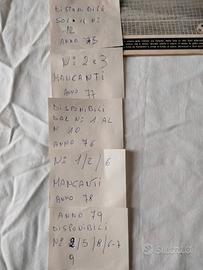 DISPONIBILE
SOLO IL N°
12
ANNO 75
N° 2 e 3
MANCANTI
ANNO 77
DISPONIBILI
DAL N° 1 AL
N 10
ANNO 76
N° 1/2/6
MANCANTI
ANNO 78
ANNO 79
DISPONIBILI
N° 2/5/8/6-7
9
Subito.it